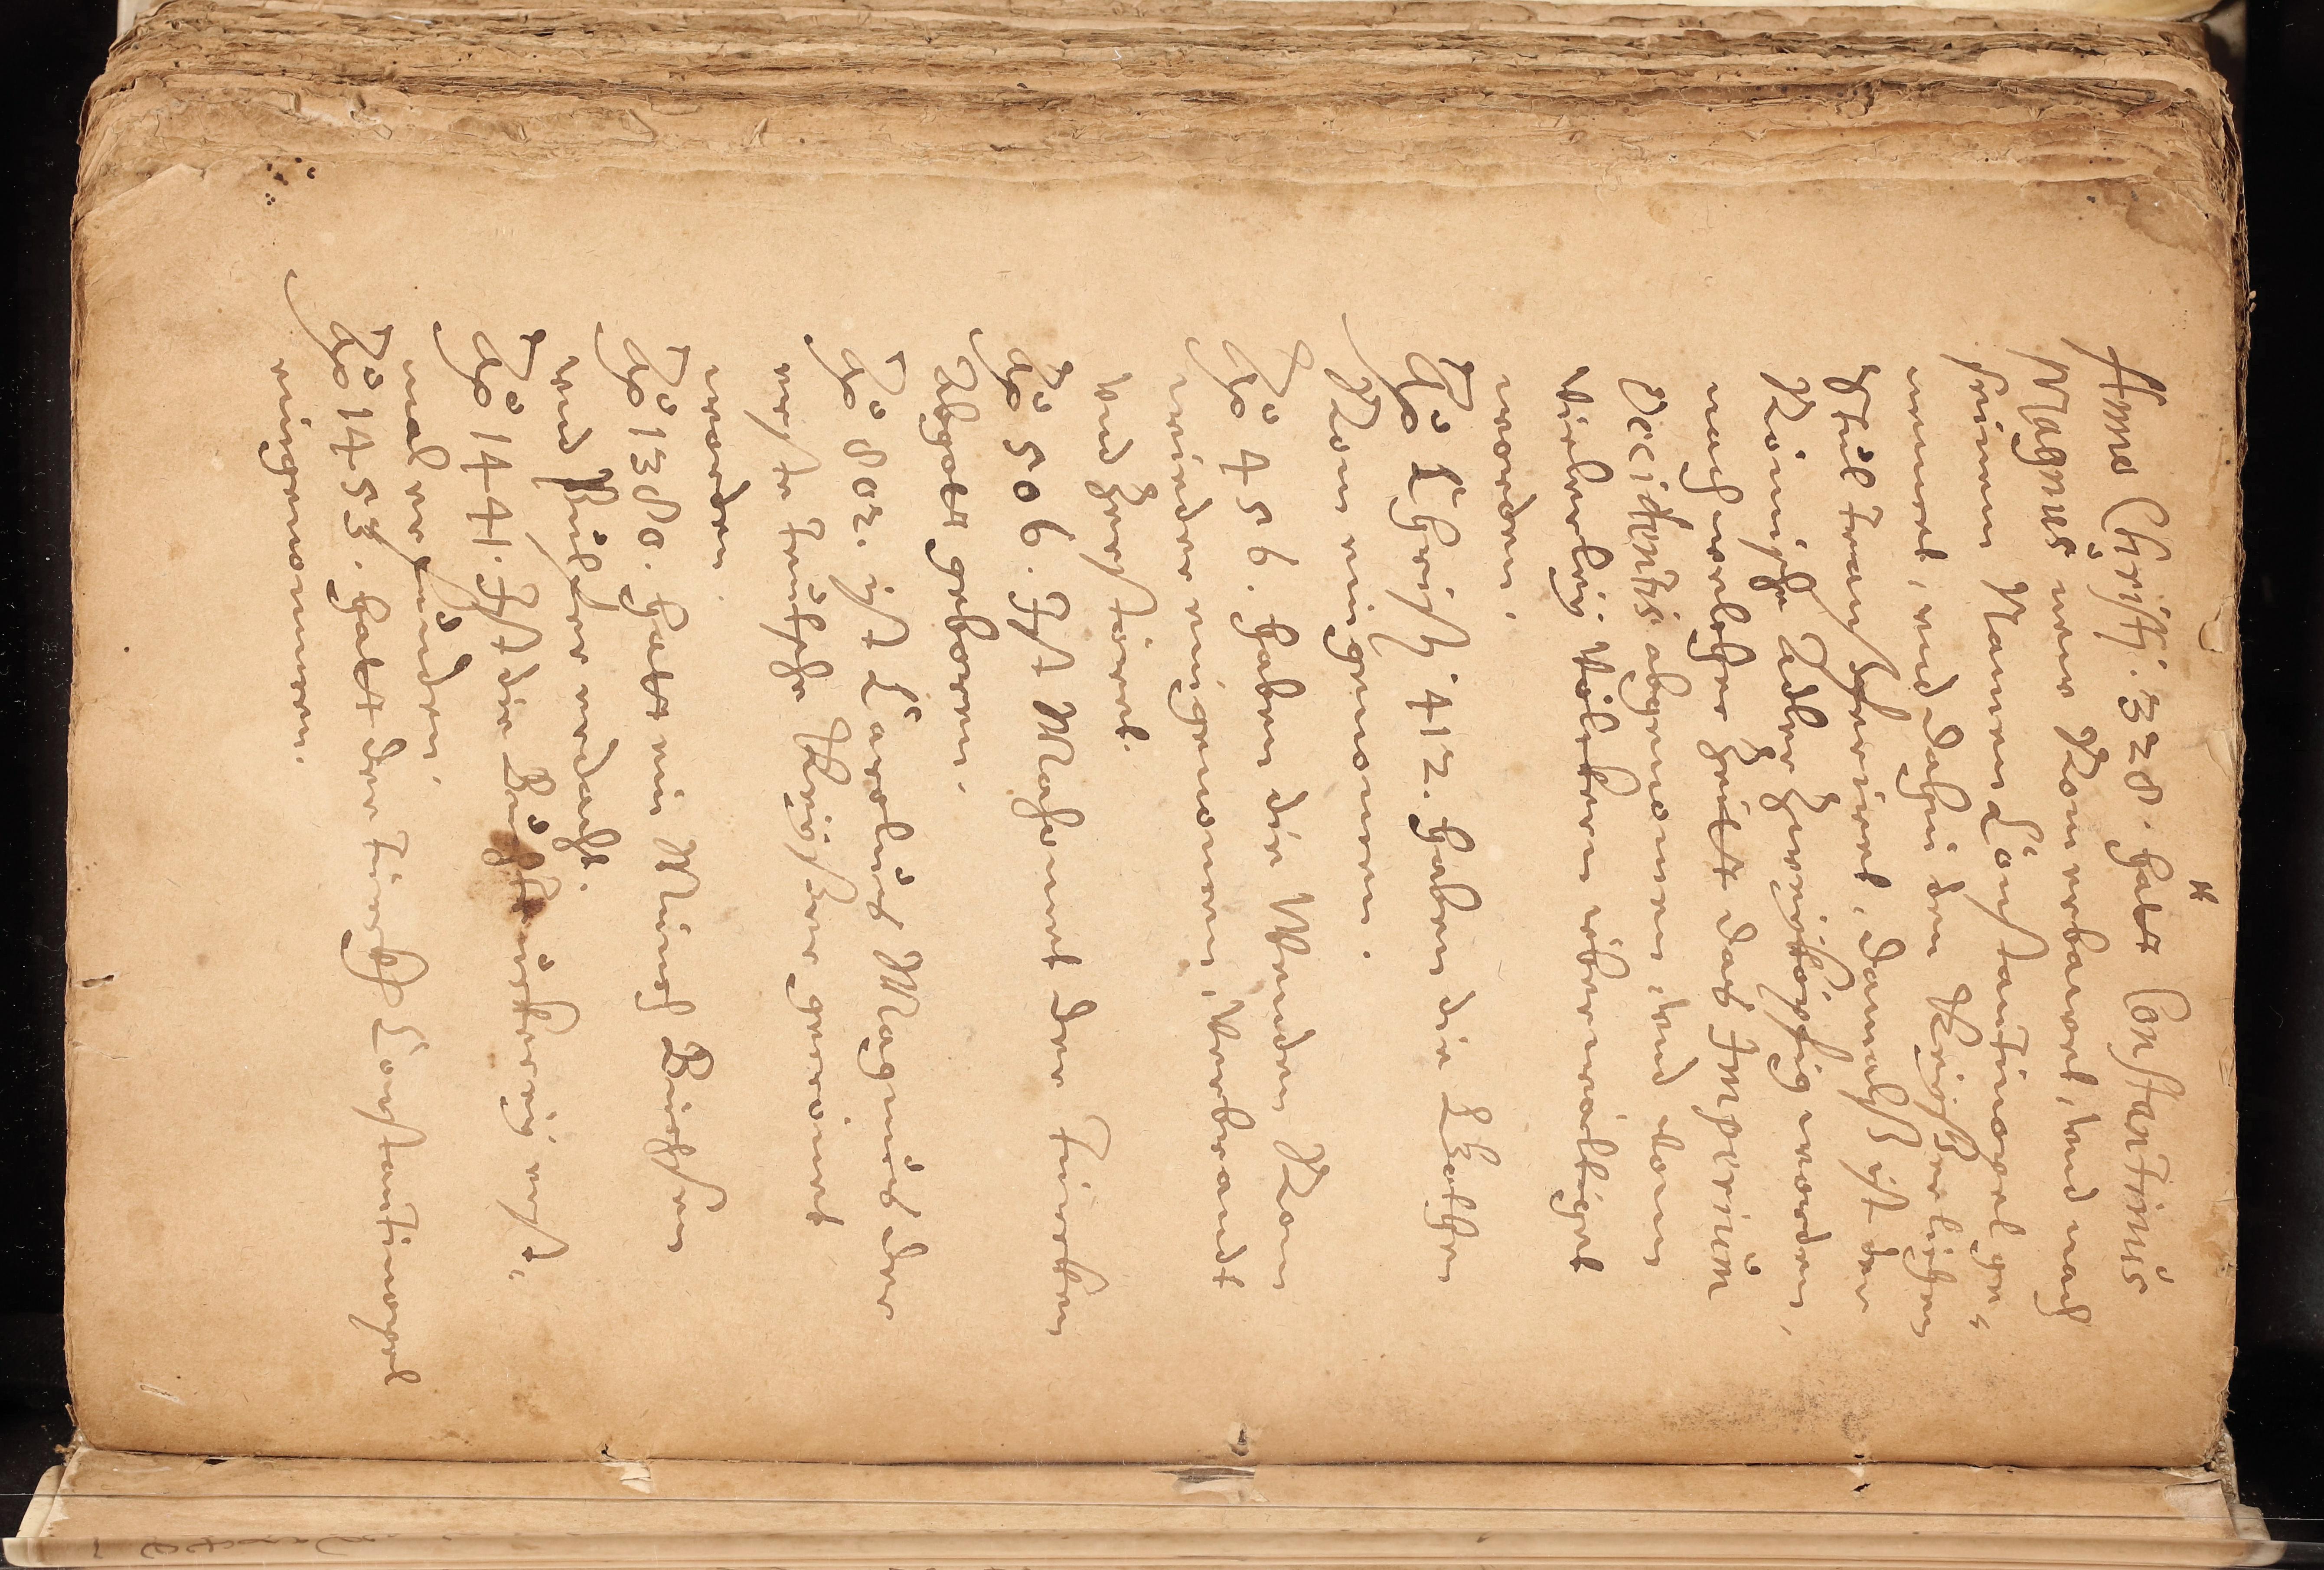 Anno Christi. 328. hatt Constantinus
Magnus new Rom erbawet, vnd nach
seinem Namen Constantinopel ge=
nennet, vnd dahin den Keyserlichen
Stuel transferieret, damalß ist der
Römische Adler Zweyköpfig worden,
nach welcher Zeitt daß Imperium
Occidentis abgenomen, vnd vonn
vielerley Völckern überwältiget
worden.
Aō Christi. 412. haben die Gothen
Rom eingenomen.
Aō 456. haben die Wenden Rom
wieder eingenomen, Verbrandt
vnd Zerstöret.
Aō 506. Ist Mahomet der Türcken
Abgott geboren.
Aō 802. ist Carolus Magnus der
erste teutsche Keyser gecrönet
worden.
Aō 1380. hatt ein Münch Büchsen
vnd Pulver erdacht.
Aō 1441. Ist die Buchtruckerey erst=
mal erfunden.
Aō 1453. hatt der Türck Constantinopel
eingenommen.